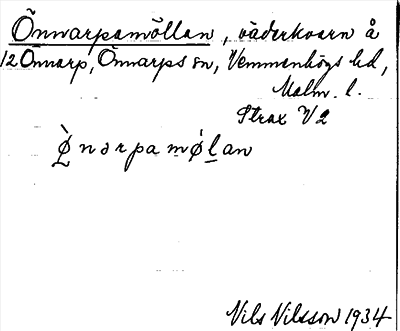 Önnarpamöllan, väderkvarn å
12 Önnarp, Önnarps sn, Vemmenhögs hd,
Malm. l.
Strax V 2
Ø̀norpamǿlan
Nils Nilsson 1934